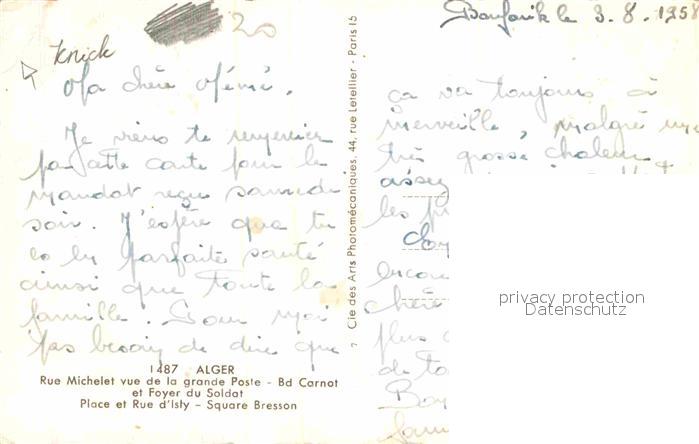 20
Boufarik le 3.8.1958
Knick
Ma chère Mémé,
Je viens te remercier
par cette carte pour le
mandat reçu samedi
soir. J'espère que tu
es en parfaite santé
ainsi que toute la
famille. Pour moi
pas besoin de dire que
ça va toujours à
merveille, malgré une
très grosse chaleur
assez
les
chère
plus
de ta
1487 ALGER
Rue Michelet vue de la grande Poste - Bd Carnot
et Foyer du Soldat
Place et Rue d'Isly - Square Bresson
7 Cie des Arts Photomécaniques, 44, rue Letellier - Paris 15
privacy protection
Datenschutz